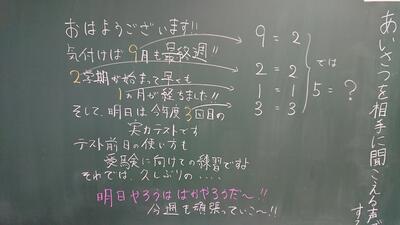 おはようございます!!
気付けば9月も最終週!!
2学期が始まって早くも
1ヵ月が経ちました!!
そして、明日は今年度3回目の
実力テストです
テスト前日の使い方も
受験に向けての練習ですよ
それでは、久しぶりの‥‥
明日やろうはばかやろうだ〜!!
今週も頑張っていこ〜!!
9 = 2
2 = 2
1 = 1
3 = 3
では
5 = ?
あいさつを相手に聞こえる声で
する